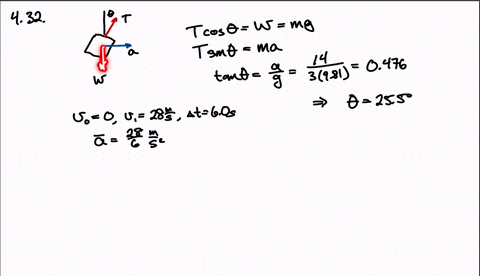 4.32.
θ T
a
W
Tcosθ = W = mg
Tsmθ = ma
tanθ = a/g = 14/3(9.81) = 0.476
⇒ θ = 25.5°
v₀ = 0, v₁ = 28 m/s, Δt = 6.0s
a̅ = 28/6 m/s²